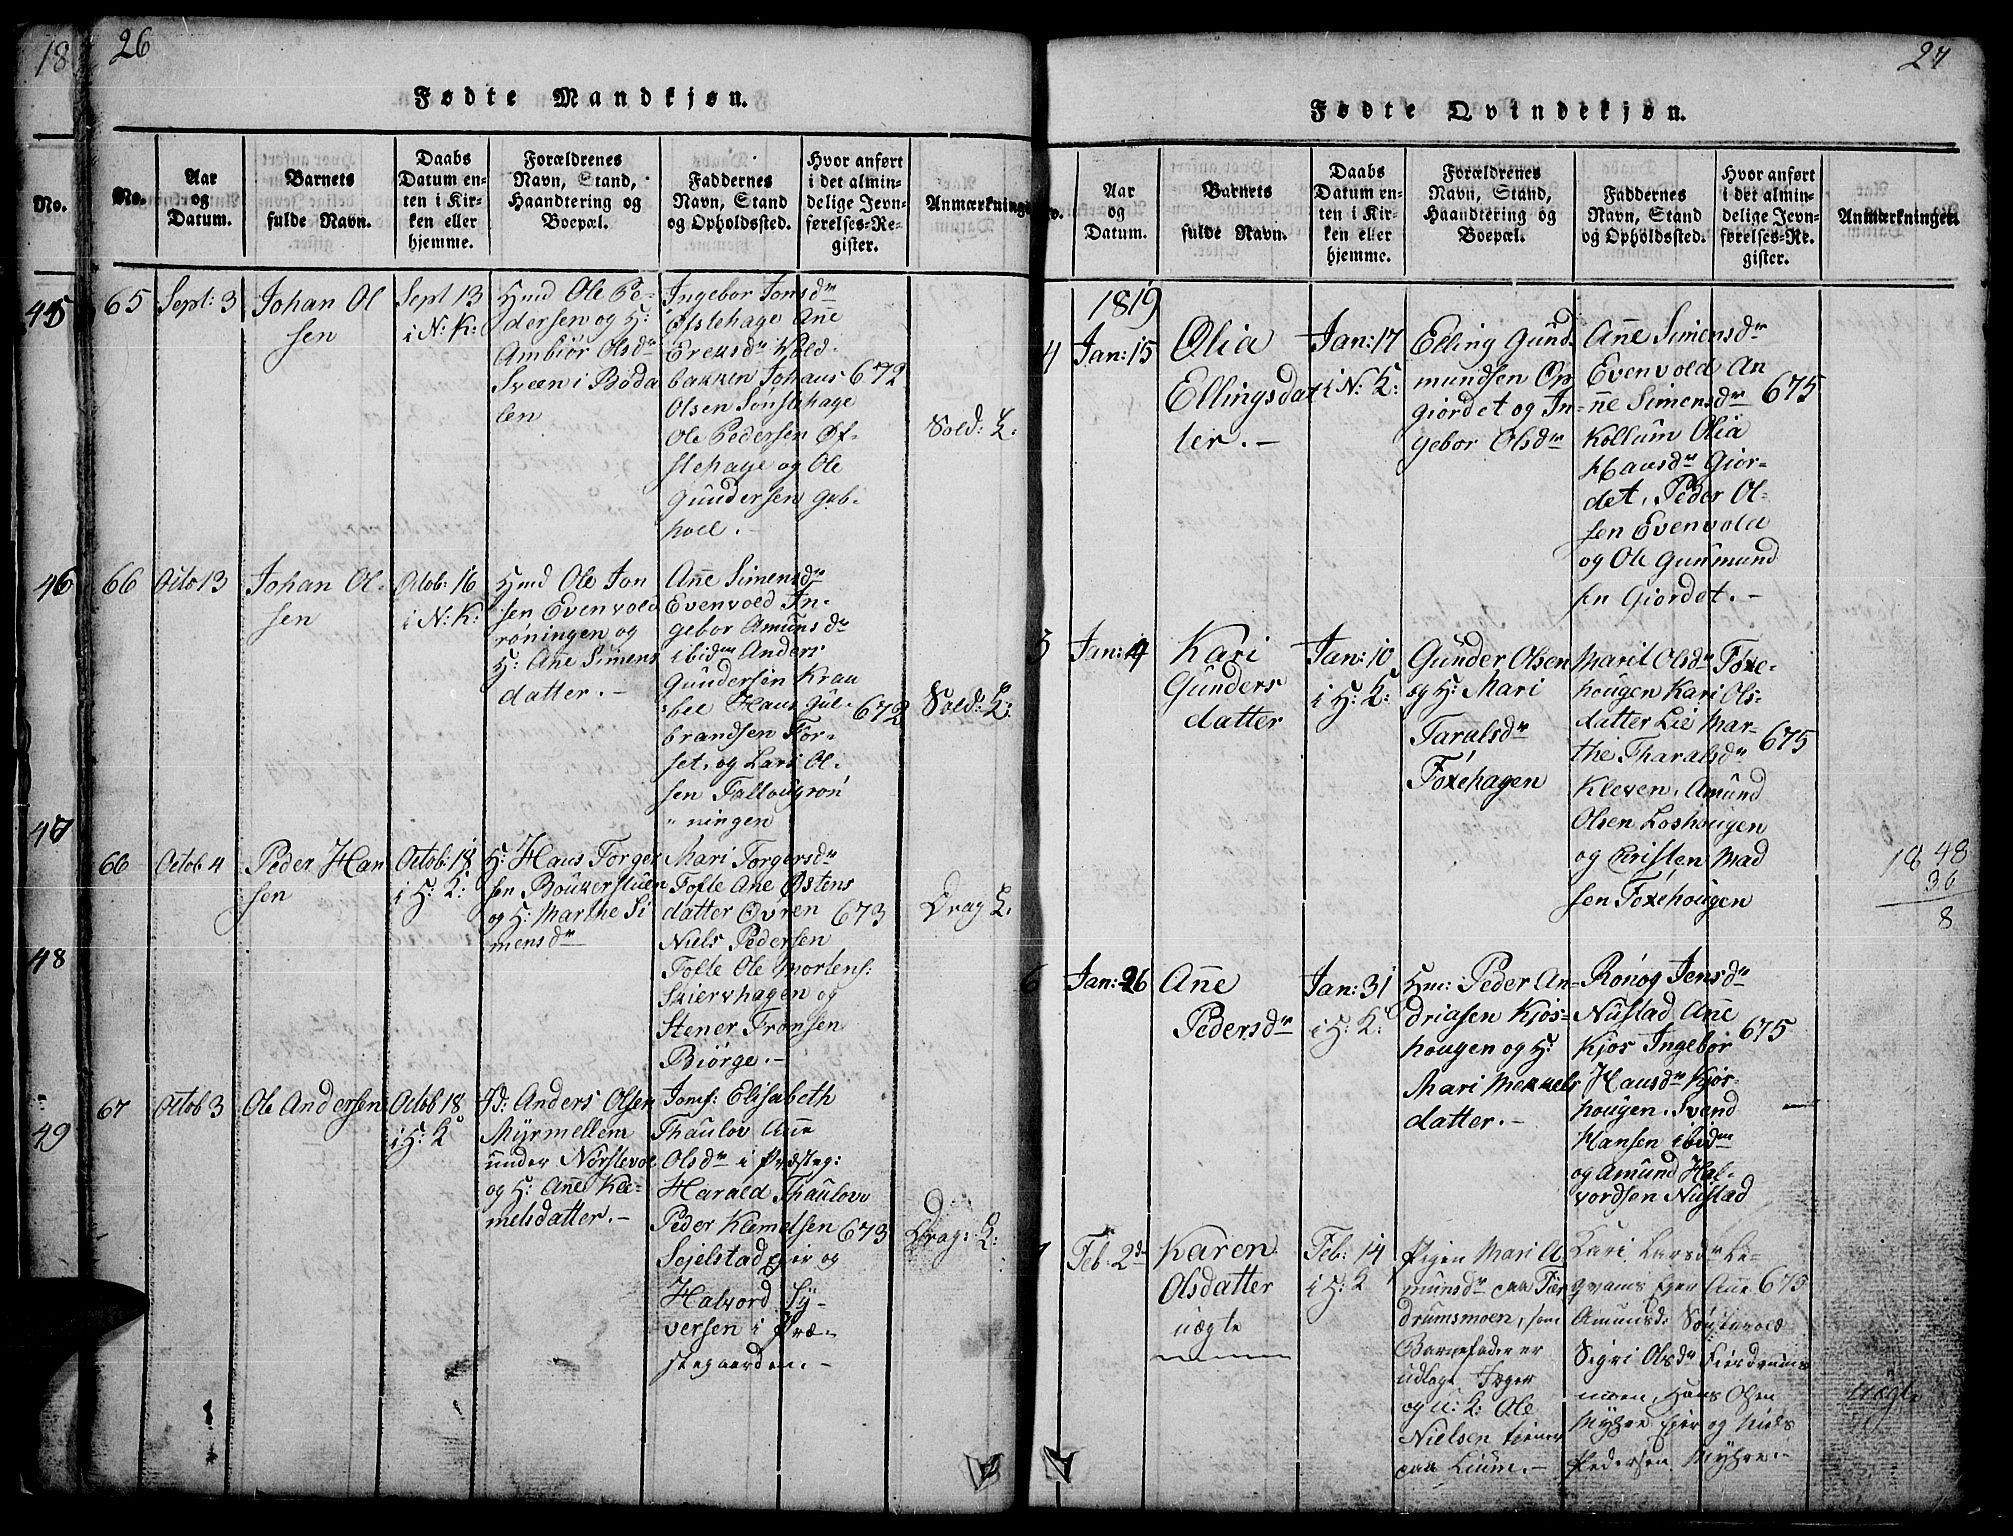 18
26
Fødte Mandkjøn.
No.
No.
Aar
og
Datum.
Barnets
fulde Navn.
Daabs
Datum en-
ten i Kir-
ken eller
hjemme.
Forældrenes
Navn, Stand,
Haandtering og
Boepæl.
Faddernes
Navn, Stand
og Opholdssted.
Hvor anført
i det almin-
delige Jevn-
førelses-Re-
gister.
Anmærkninge
45
65
Sept: 3
Johan Ol
sen
Sept 13
i N: K:
Hmd Ole Pe-
dersen og H:
Ambiør Olsdr
Sveen i Bøda
len
Ingebor Jonsdr
Østehage Añe
Ereksdr Vold-
bakken Johans
Olsen Sønstehage
Ole Pedersen Øf-
stehage og Ole
Gundersen Geb-
hoel.
672
Sold: K:
46
66
Octo 13
Johan Ol-
sen
Octob: 16
i N: K:
Hmd Ole Jon
sen Evenvold
røningen og
H: Añe Simens
datter.-
Añe Simensdr
Evenvold In-
gebor Amunsdr
ibidm Anders
Gundersen Krau
bel Hans Gul-
brandsen For-
set, og Lars Ol-
sen Falloug røn
" ningen
672
Sold: K:
47
66
Octob 4
Peder Han
sen
Octob: 18
i H: K:
H: Hans Torger
sen Boukerstuen
og H: Marthe Si
mensdr
Mari Torgersdr
Tofte Ane Østens
datter Øvren
Niels Pedersen
Tofte Ole Mortens:
Skiervhagen og
Stener Fronsen
Biørge.-
673
Drag K:
48
49
67
Octob 3
Ole Andersen
Octob 18
i H: K
Gd: Anders Olsen
Myrmellem
under Nørstevol
og H: Añe Kle-
melsdatter.-
Jomf: Elisabeth
Thaulov Añe
Olsdr i Præsteg:
Harald Thaulow
Peder Klemelsen
Sejelstad Ejer og
Halvord Sy-
versen i Præ-
stegaarden.-
673
Drag: K:
27
Fødte Qvindekjøn.
Aar
og
Datum.
Barnets
fulde Navn.
Daabs
Datum en-
ten i Kir-
ken eller
hjemme.
Forældrenes
Navn, Stand,
Haandtering og
Boepæl.
Faddernes
Navn, Stand
og Opholdssted.
Hvor anført
i det almin-
delige Jevn-
førelses-Re-
gister.
Anmærkninger.
1819
4
Jan: 15
Olia
Ellingsdat
ter.-
Jan: 17
i N: K:
Elling Gund-
mundsen Op
giordet og In-
gebor Olsdr
Añe Simensdr
Evenvold An
ne Simensdr
Kollum Olia
Hansdr Gior-
det, Peder Ol-
sen Evenvold
og Ole Gunmund
sen Giordet.-
675
5
Jan: 4
Kari
Gunders
datter
Jan: 10
i H: K:
Gunder Olsen
og H: Mari
Taralsdr
Foxehagen
Marit Olsdr Foxe-
hougen Kari Ols-
datter Lie Mar-
the Tharalsdr
Kleven. Amund
Olsen Loshougen
og Christen Mad
sen Foxehougen
675
18 48
36
8
6
Jan: 26
Añe
Pedersdr
Jan: 31
i H: K:
Hm: Peder An-
driasen Kjøs-
hougen og H:
Mari Mekkels
datter.-
Rønog Jensdr
Nustad Añe
Kjos Ingebor
Hansdr Kjøs-
hougen. Ivand
Hansen ibidm
og Amund Hal-
vordsen Nustad
675
7
Feb: 2d
Karen
Olsdatter
uægte
Feb: 14
i H: K
Pigen Mari A
munsdr paa Fær
drumsmoen, som
Barnefader er
udlagt Jæger
og u: K: Ole
Nielsen tiener
paa Lium.-
Kari Larsdr Le-
qvams Ejer Añe
Amunsd: Søstevold
Sigri Olsdr Fierdrums
moen, Hans Olsen
Myhre Ejer og Niels
Pedersen Myhre.-
675
uægte